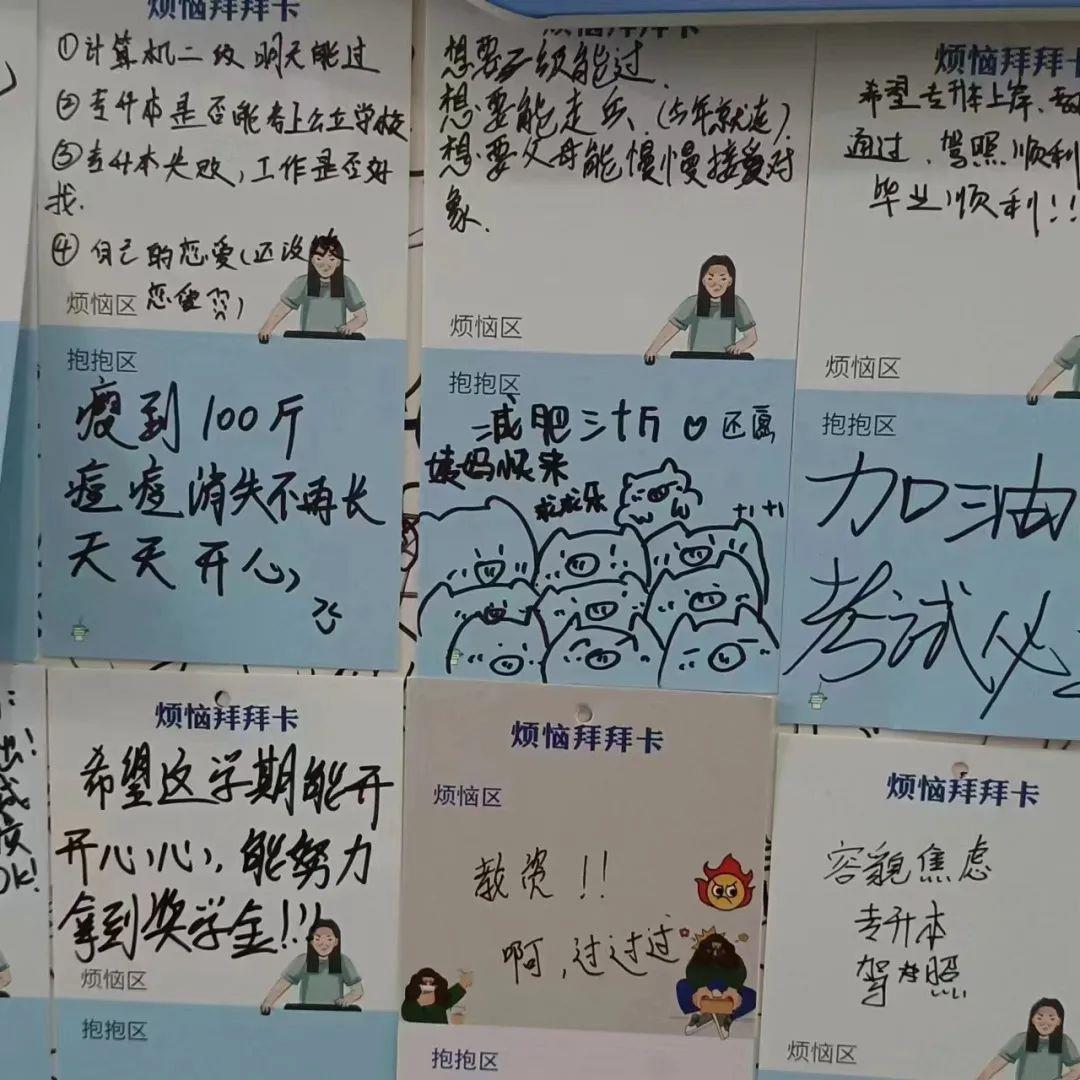 烦恼拜拜卡
①计算机二级明天能过
②专升本是否能考上公立学校
③专升本失败,工作是否好
找.
④自己的恋爱(还没
恋爱
烦恼区
抱抱区
瘦到100斤
痘痘消失不再长
天天开心
想要二级能过
想要能走兵.(今年就走)
想要父母能慢慢接受对
象.
烦恼区
抱抱区
减肥三十斤♡还愿
姨妈顺来
求求乐
+1 +1
烦恼拜拜卡
希望专升本上岸、
通过、驾照顺利
毕业顺利!!
烦恼区
抱抱区
加油
考试必
OK!
烦恼拜拜卡
希望这学期能开
开心心,能努力
拿到奖学金!!!
烦恼区
抱抱区
烦恼拜拜卡
烦恼区
教资!!
啊,过过过
抱抱区
烦恼拜拜卡
容貌焦虑
专升本
驾照
烦恼区